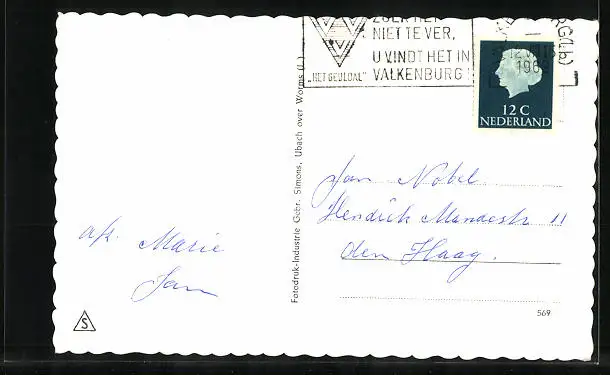 ZOEK HET
NIET TE VER,
U VINDT HET IN
„HET GEULDAL” VALKENBURG
196
12 C
NEDERLAND
Fotodruk-Industrie Gebr. Simons, Ubach over Worms (L.)
Jan Nobel
Hendrik Mandestr 11
den Haag.
afz. Marie
Jan
S
569